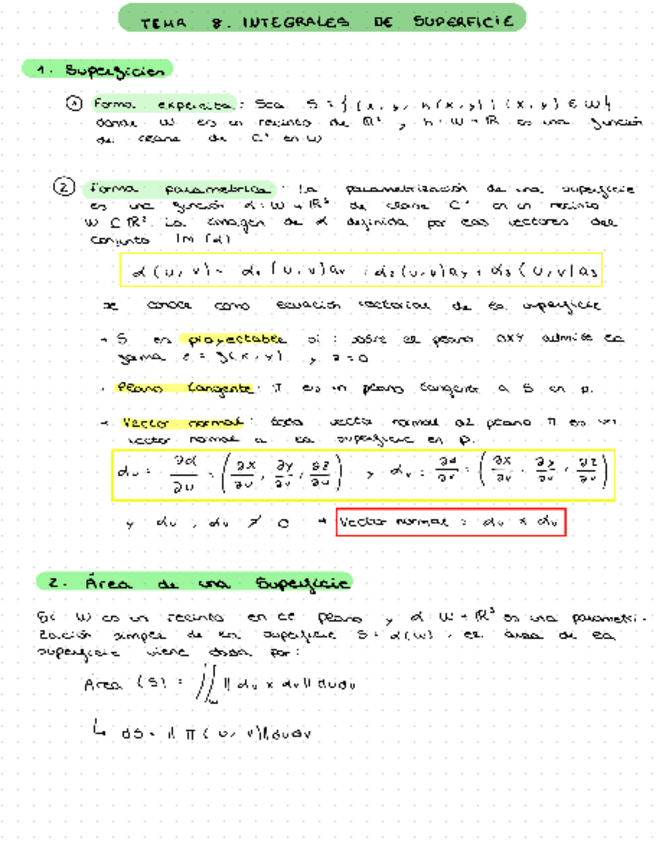 TEMA 8. INTEGRALES DE SUPERFICIE
1. Superficies
① Forma explicita: Sea S = { (x, y, h(x, y)) | (x, y) ∈ W }
donde W es un recinto de R² y h: W → R es una función
de clase de C¹ en W
② Forma parametrica: La parametrización de una superficie
es una función α: W → R³ de clase C¹ en un recinto
W ⊂ R². La imagen de α definida por los vectores del
conjunto Im (α)
α (u, v) = α₁ (u, v) a₁ + α₂ (u, v) a₂ + α₃ (u, v) a₃
se conoce como ecuación vectorial de la superficie
→ S es proyectable si: sobre el plano OXY admite la
forma z = g(x, y) y z = 0
· Plano tangente: π es un plano tangente a S en p.
→ Vector normal: todo vector normal al plano π es un
vector normal a la superficie en p.
αu = ∂α/∂u = (∂x/∂u, ∂y/∂u, ∂z/∂u) y αv = ∂α/∂v = (∂x/∂v, ∂y/∂v, ∂z/∂v)
y αu, αv ≠ 0 → Vector normal = αu × αv
2. Área de una Superficie
Si W es un recinto en el plano y α: W → R³ es una parametri-
zación simple de la superficie S = α(W), el área de la
superficie viene dada por:
Área (S) = ∬w || αu × αv || du dv
↳ dS = || π (u, v) || du dv